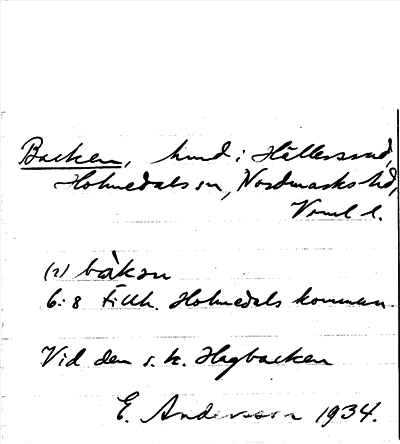 Backen, hmd i Hällersrud,
Holmedals sn, Nordmarks hd,
Vrml l.
(2) bàkən
6:8 Tillh. Holmedals komman.
Vid den s.k. Hagbacken
E. Andersson 1934.